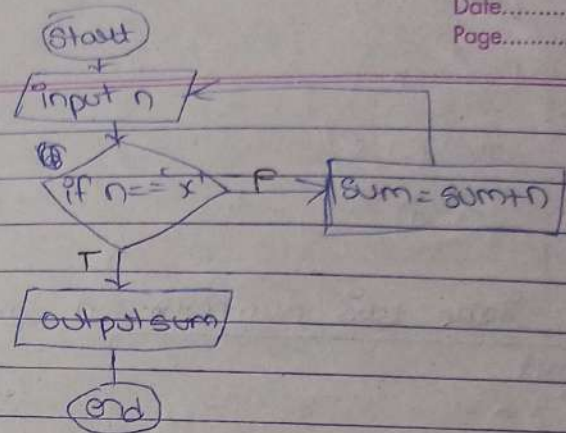 Date.........
Page.........
Start
input n
if n=='x'
F
sum=sum+n
T
output sum
end